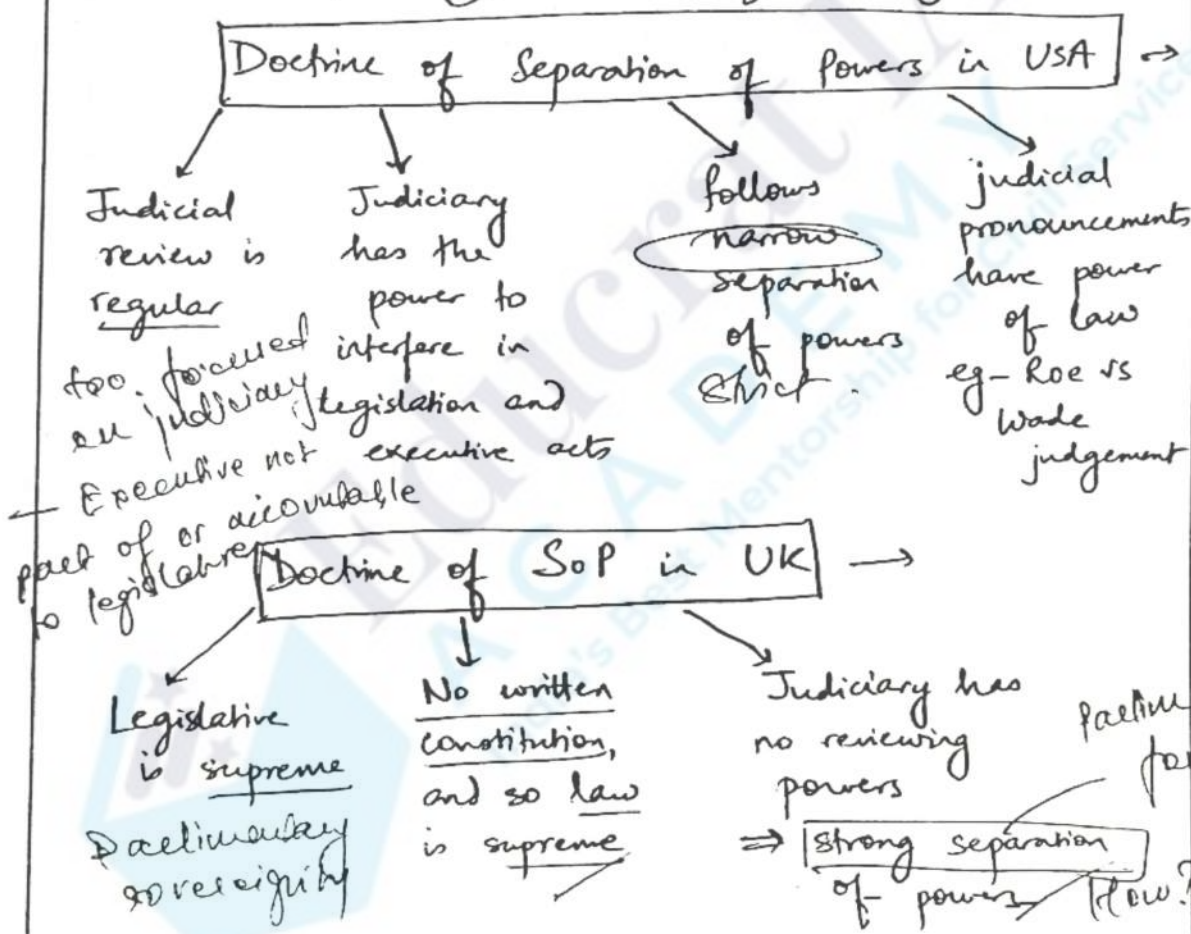 Doctrine of Separation of Powers in USA →
Judicial
review is
regular
Judiciary
has the
power to
interfere in
legislation and
executive acts
follows
narrow
separation
of powers
Strict.
judicial
pronouncements
have power
of law
eg - Roe vs
Wade
judgement
too focused
on judiciary
— Executive not
part of or accountable
to legislature
Doctrine of SoP in UK →
Legislative
is supreme
Parlimentary
sovereignity
No written
constitution,
and so law
is supreme
Judiciary has
no reviewing
powers
⇒ strong separation
of powers
How?
Educrat IA
ACADEMY
India's Best Mentorship for Civil Service